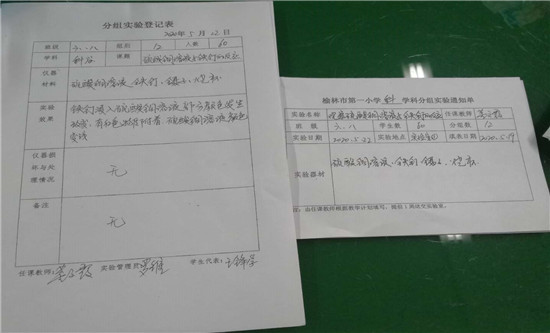 分组实验登记表
2020年5月12日
班级 六.八 组数 12 人数 60
学科 科学 课题 硫酸铜溶液与铁钉的反应
仪器
材料
硫酸铜溶液、铁钉、镊子、烧杯
实验
效果
铁钉浸入硫酸铜溶液部分颜色发生
改变,有红色物质附着,硫酸铜溶液颜色
变浅
仪器损
坏与处
理情况
无
备注
无
任课教师: 实验管理员: 学生代表:
榆林市第一小学 科 学科分组实验通知单
实验名称 任课教师
班级 六.八 学生数 60 分组数 12
实验日期 2020.5.22 实验地点 实验室 填表日期 2020.5.19
实验器材
硫酸铜溶液、铁钉、镊子、烧杯
注:由任课教师根据教学计划填写,提前1周送交实验室。